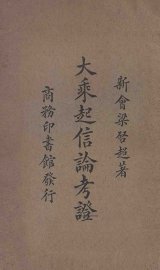 新會梁啓超著
大乘起信論考證
商務印書館發行